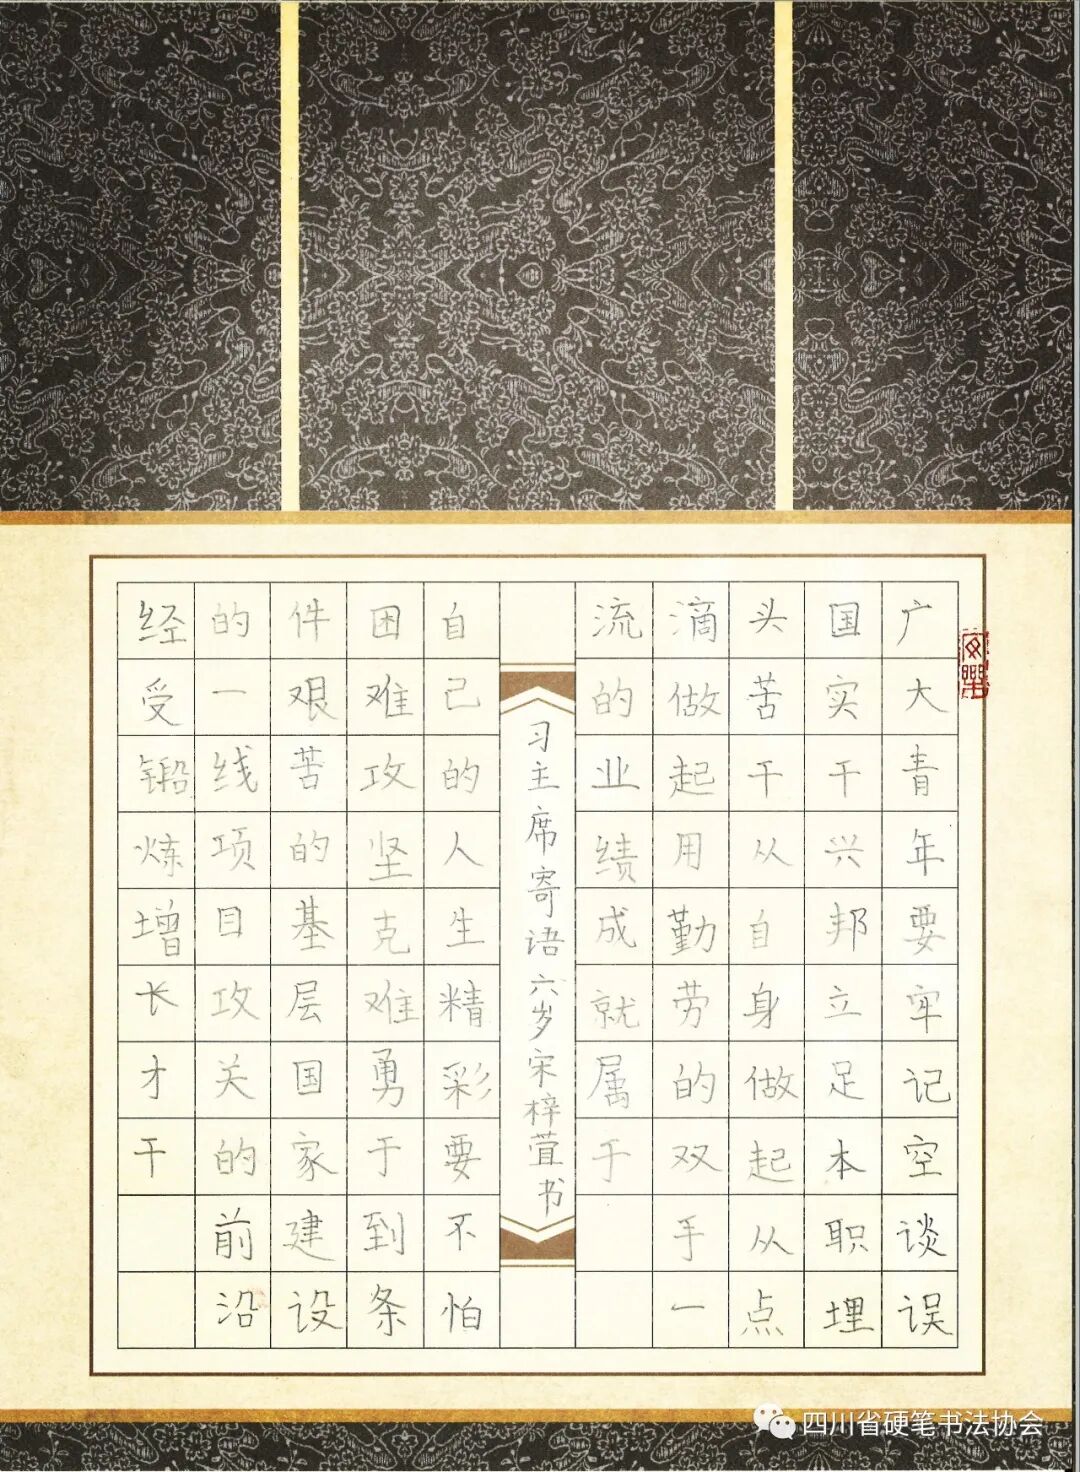 广大青年要牢记空谈误
国实干兴邦立足本职埋
头苦干从自身做起从点
滴做起用勤劳的双手一
流的业绩成就属于
习主席寄语六岁宋梓萱书
自己的人生精彩要不怕
困难攻坚克难勇于到条
件艰苦的基层国家建设
的一线项目攻关的前沿
经受锻炼增长才干
四川省硬笔书法协会